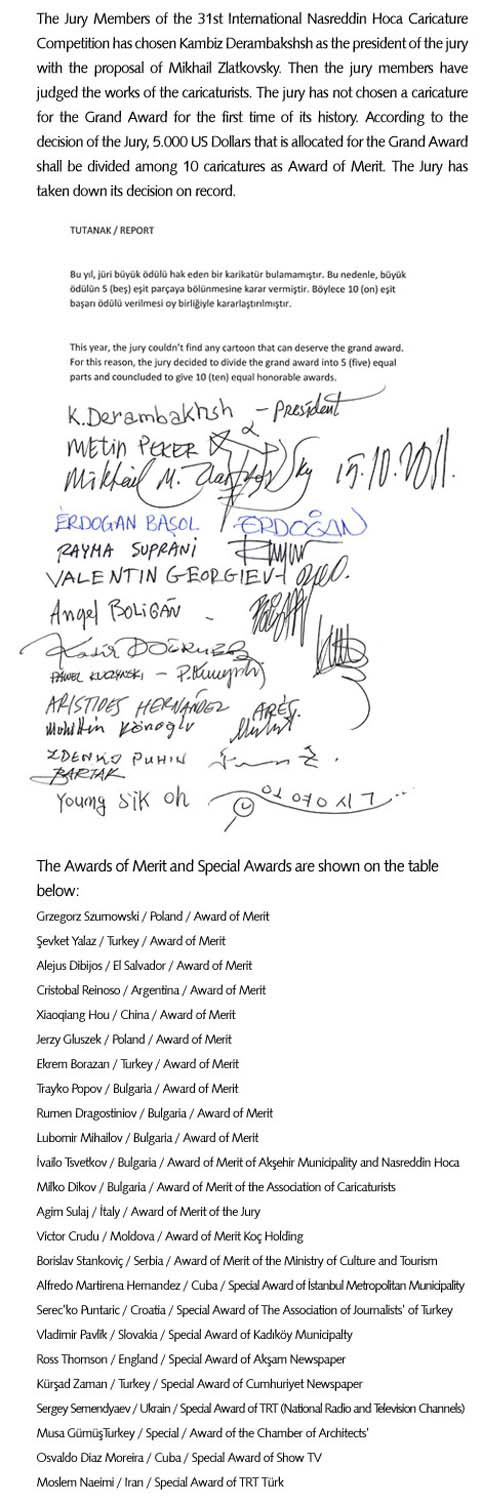 The Jury Members of the 31st International Nasreddin Hoca Caricature
Competition has chosen Kambiz Derambakshsh as the president of the jury
with the proposal of Mikhail Zlatkovsky. Then the jury members have
judged the works of the caricaturists. The jury has not chosen a caricature
for the Grand Award for the first time of its history. According to the
decision of the Jury, 5.000 US Dollars that is allocated for the Grand Award
shall be divided among 10 caricatures as Award of Merit. The Jury has
taken down its decision on record.
TUTANAK / REPORT
Bu yıl, jüri büyük ödülü hak eden bir karikatür bulamamıştır. Bu nedenle, büyük
ödülün 5 (beş) eşit parçaya bölünmesine karar vermiştir. Böylece 10 (on) eşit
başarı ödülü verilmesi oy birliğiyle kararlaştırılmıştır.
This year, the jury couldn't find any cartoon that can deserve the grand award.
For this reason, the jury decided to divide the grand award into 5 (five) equal
parts and councluded to give 10 (ten) equal honorable awards.
K. Derambakhsh - President
METİN PEKER
Mikhail M. Zlatkovsky 15.10.2011.
ERDOĞAN BAŞOL ERDOĞAN
RAYMA SUPRANI
VALENTIN GEORGIEV
Angel BOLIGÁN -
Kadir DOĞRUER
PAWEŁ KUCZYNSKI - P. Kuczynski
ARISTIDES HERNÁNDEZ ARES.
Muhittin Köroglu
ZDENKO PUHIN
BARTAK
Young Sik oh 오영식
The Awards of Merit and Special Awards are shown on the table
below:
Grzegorz Szumowski / Poland / Award of Merit
Şevket Yalaz / Turkey / Award of Merit
Alejus Dibijos / El Salvador / Award of Merit
Cristobal Reinoso / Argentina / Award of Merit
Xiaoqiang Hou / China / Award of Merit
Jerzy Gluszek / Poland / Award of Merit
Ekrem Borazan / Turkey / Award of Merit
Trayko Popov / Bulgaria / Award of Merit
Rumen Dragostiniov / Bulgaria / Award of Merit
Lubomir Mihailov / Bulgaria / Award of Merit
İvailo Tsvetkov / Bulgaria / Award of Merit of Akşehir Municipality and Nasreddin Hoca
Milko Dikov / Bulgaria / Award of Merit of the Association of Caricaturists
Agim Sulaj / İtaly / Award of Merit of the Jury
Victor Crudu / Moldova / Award of Merit Koç Holding
Borislav Stankoviç / Serbia / Award of Merit of the Ministry of Culture and Tourism
Alfredo Martirena Hernandez / Cuba / Special Award of İstanbul Metropolitan Municipality
Serec'ko Puntaric / Croatia / Special Award of The Association of Journalists' of Turkey
Vladimir Pavlik / Slovakia / Special Award of Kadıköy Municipalty
Ross Thomson / England / Special Award of Akşam Newspaper
Kürşad Zaman / Turkey / Special Award of Cumhuriyet Newspaper
Sergey Semendyaev / Ukrain / Special Award of TRT (National Radio and Television Channels)
Musa GümüşTurkey / Special / Award of the Chamber of Architects'
Osvaldo Diaz Moreira / Cuba / Special Award of Show TV
Moslem Naeimi / Iran / Special Award of TRT Türk